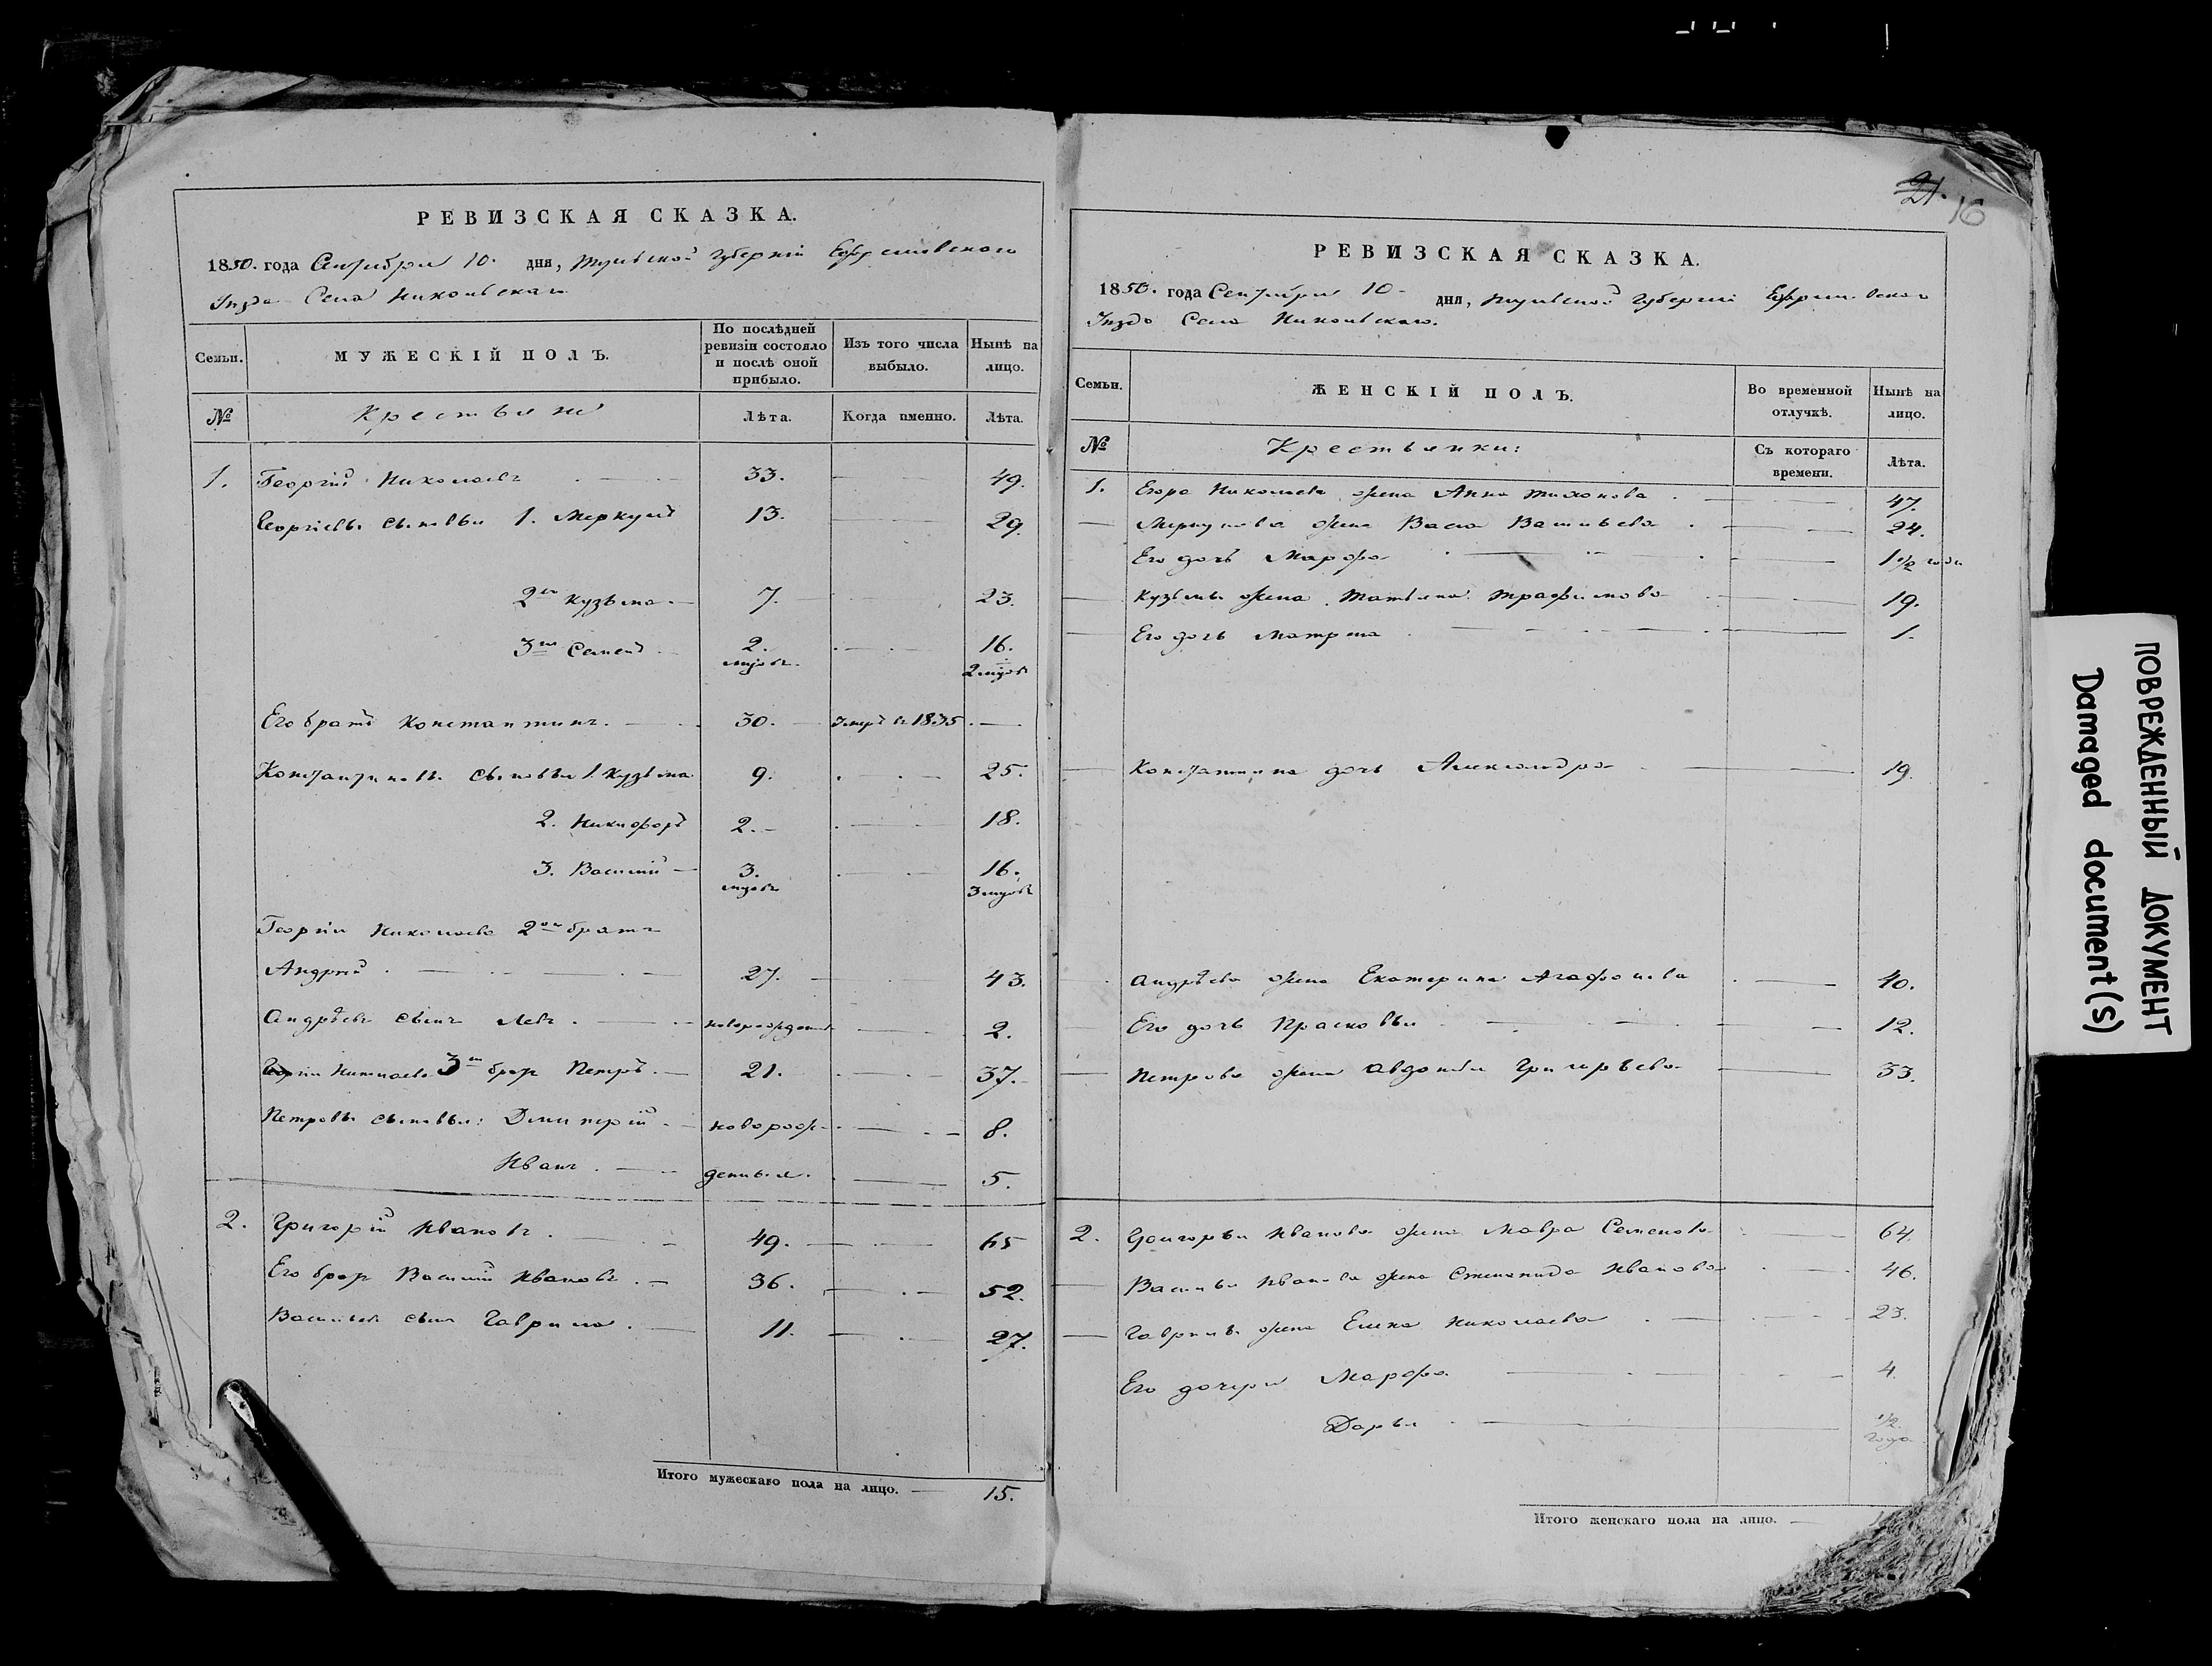 21. 16
РЕВИЗСКАЯ СКАЗКА.
1850. года Сентября 10. дня, Тульской Губерніи Ефремовскаго
Уѣзда Села Никольскаго
Семьи. МУЖЕСКІЙ ПОЛЪ. По послѣдней ревизіи состояло и послѣ оной прибыло. Изъ того числа выбыло. Нынѣ на лицо.
№ Крестьяне Лѣта. Когда именно. Лѣта.
1. Георгій Николаевъ 33. 49.
Георгіевы сыновья 1. Меркулъ 13. 29.
2й Кузьма 7. 23.
3й Семенъ 2. мѣсяц. 16. 2 мѣсяц.
Его братъ Константинъ. 30. Умеръ въ 1835
Константиновы сыновья 1. Кузьма 9. 25.
2. Никифоръ 2. 18.
3. Василій 3. 16.
Георгія Николаева 2ой братъ
Андрей 27. 43.
Андреевъ сынъ Левъ новорожден 2.
Георгія Николаева 3й братъ Петръ. 21. 37.
Петровы сыновья: Дмитрій новорож- 8.
Иванъ денные. 5.
2. Григорій Ивановъ 49. 65
Его братъ Василій Ивановъ 36. 52.
Васильевъ сынъ Гаврила 11. 27.
Итого мужескаго пола на лицо. 15.
РЕВИЗСКАЯ СКАЗКА.
1850. года Сентября 10 дня, Тульской Губерніи Ефремовскаго
Уѣзда Села Никольскаго.
Семьи. ЖЕНСКІЙ ПОЛЪ. Во временной отлучкѣ. Нынѣ на лицо.
№ Крестьянки: Съ котораго времени. Лѣта.
1. Егора Николаева жена Анна Тихонова 47.
Меркулова жена Васа Васильева 24.
Его дочь Марфа 1 1/2 года
Кузьмы жена Татьяна Трафимова 19.
Его дочь Матрена 1.
Константина дочь Александра 19.
Андрѣева жена Екатерина Агафонова 40.
Его дочь Прасковья 12.
Петрова жена Авдотья Григорьева 33.
2. Григорья Иванова жена Мавра Семенова 64.
Василья Иванова жена Степанида Иванова 46.
Гаврилы жена Елена Николаева 23.
Его дочери Марфа 4.
Дарья 1/2 года
Итого женскаго пола на лицо.
ПОВРЕЖДЕННЫЙ ДОКУМЕНТ
Damaged document(s)